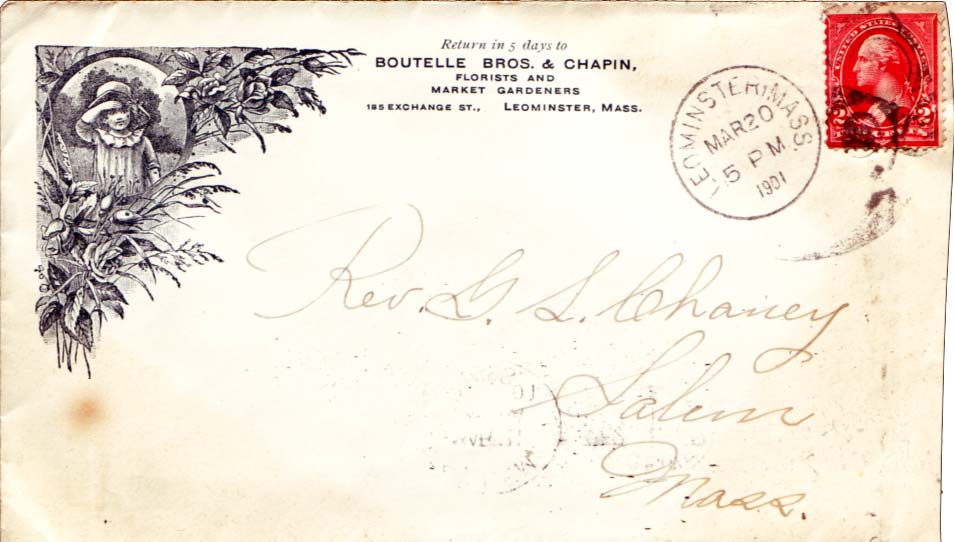 Return in 5 days to
BOUTELLE BROS. & CHAPIN,
FLORISTS AND
MARKET GARDENERS
185 EXCHANGE ST., LEOMINSTER, MASS.
LEOMINSTER, MASS
MAR 20
5 PM
1901
UNITED STATES
2 2
Rev. G. L. Chaney
Salem
Mass.